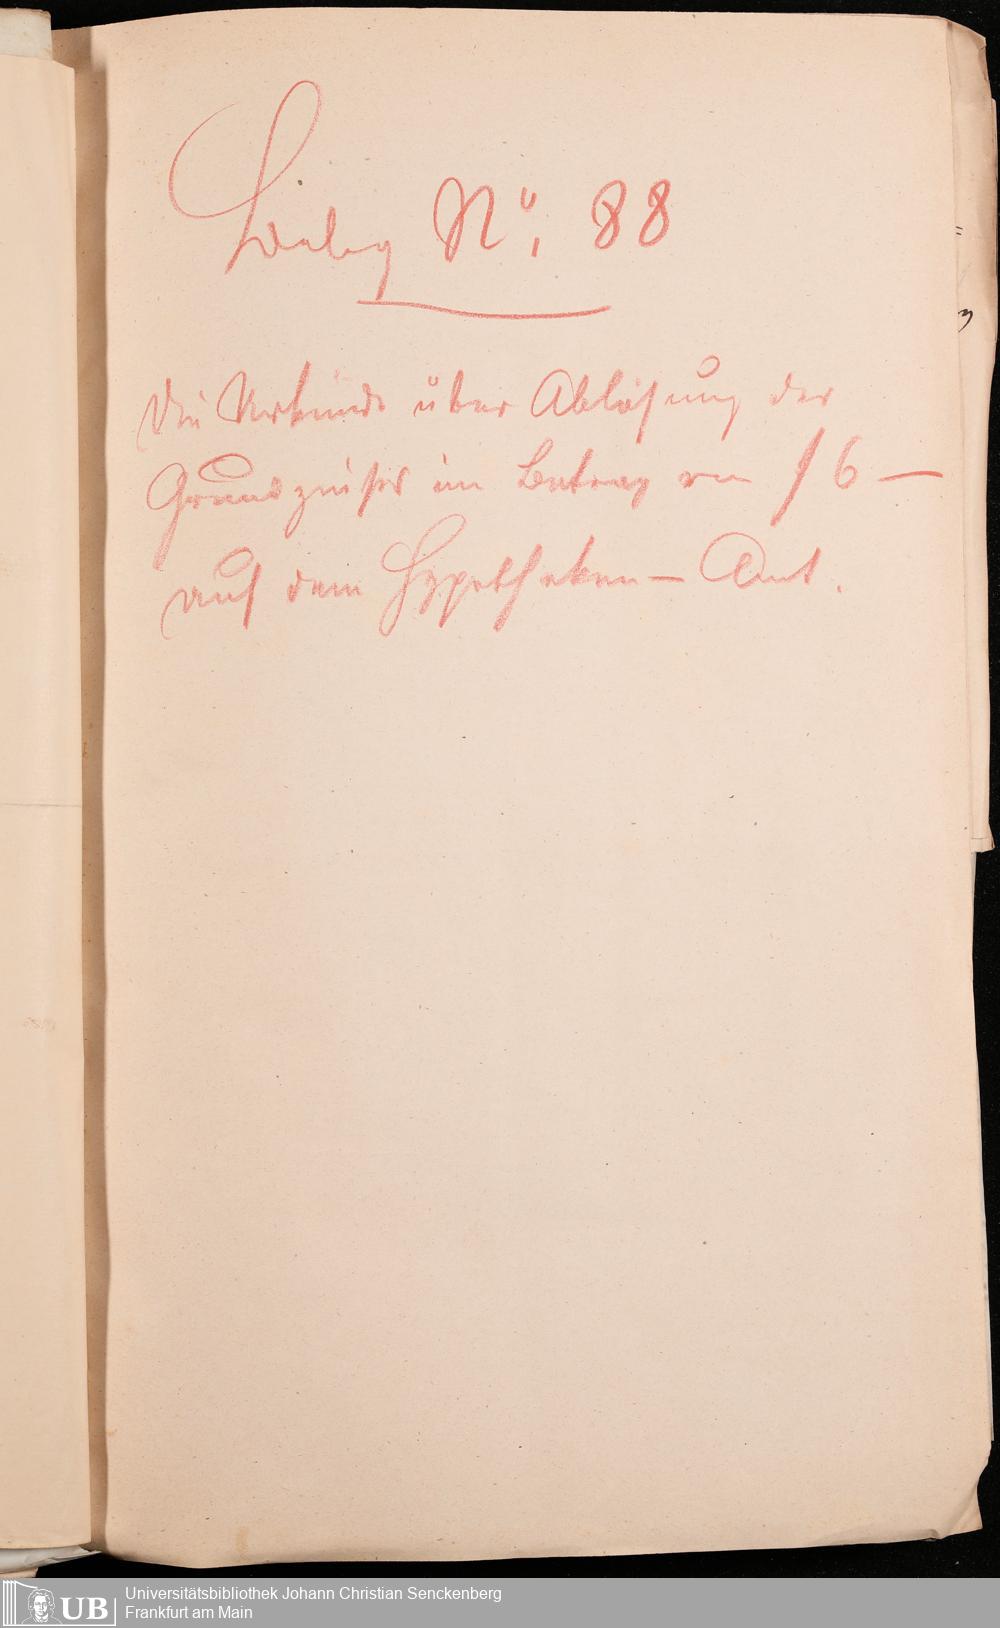 Beleg No. 88
Die Urkunde über Ablösung des
Grundzinses im Betrag von f 6 —
auf dem Hypotheken-Amt.
UB
Universitätsbibliothek Johann Christian Senckenberg
Frankfurt am Main